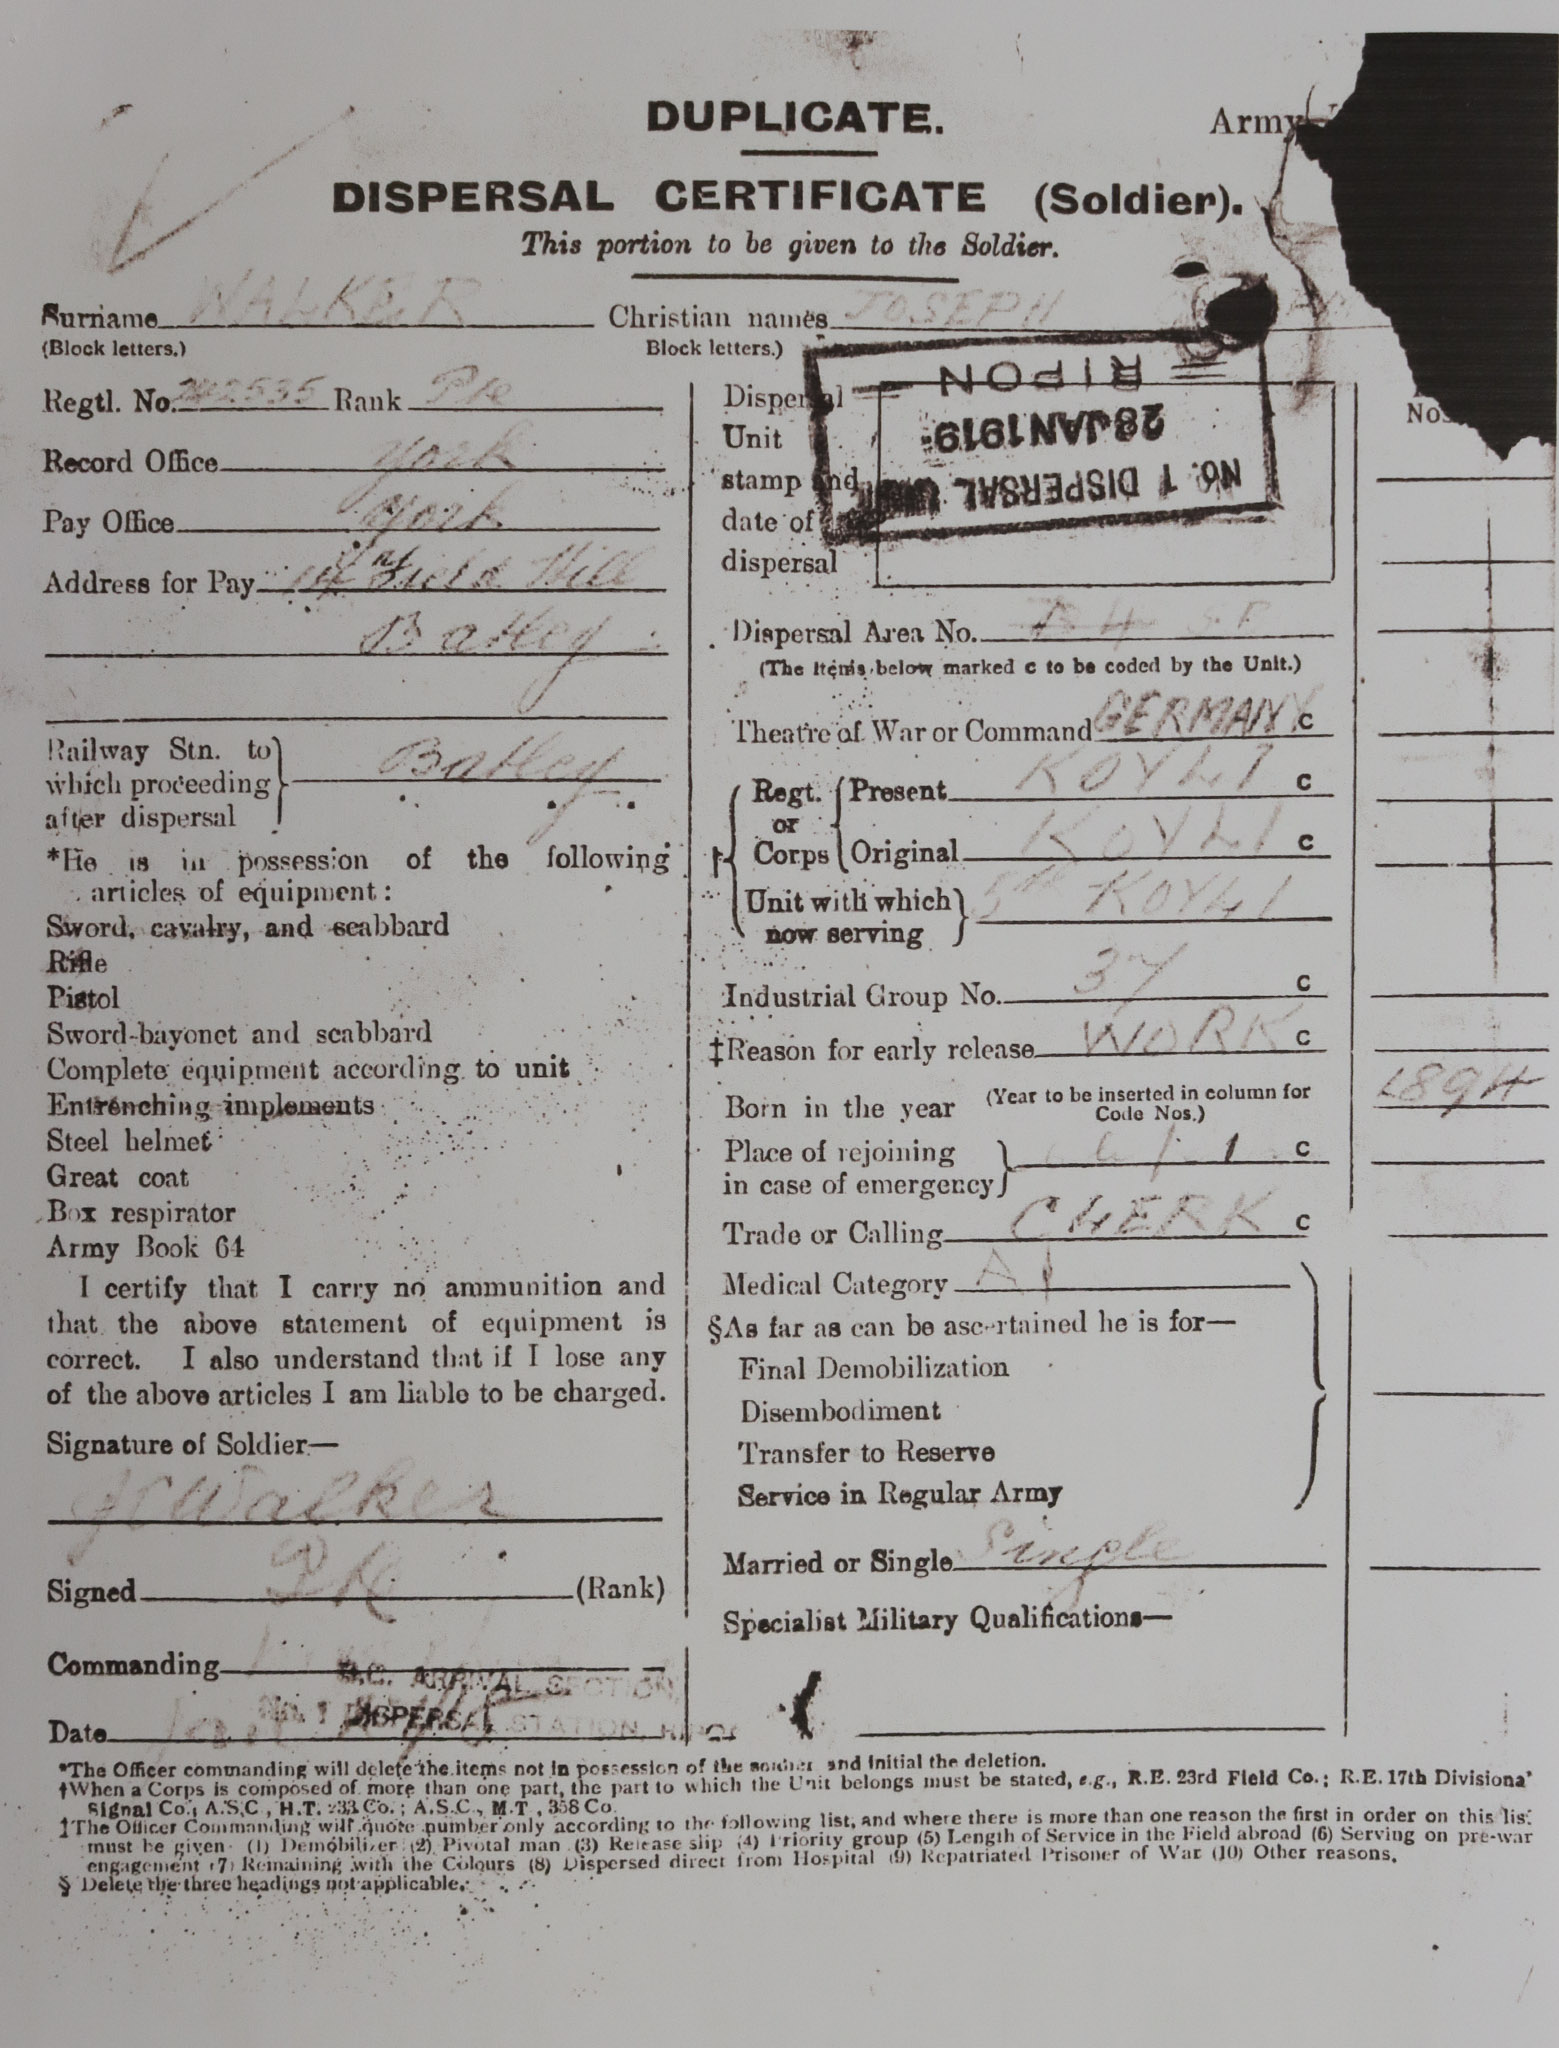 DUPLICATE.
Army
DISPERSAL CERTIFICATE (Soldier).
This portion to be given to the Soldier.
Surname WALKER Christian names JOSEPH
(Block letters.) Block letters.)
Regtl. No. 242535 Rank Pte
Record Office York
Pay Office York
Address for Pay Field Hill
Batley
Railway Stn. to
which proceeding
after dispersal
Batley
*He is in possession of the following
articles of equipment:
Sword, cavalry, and scabbard
Rifle
Pistol
Sword-bayonet and scabbard
Complete equipment according to unit
Entrenching implements
Steel helmet
Great coat
Box respirator
Army Book 64
I certify that I carry no ammunition and
that the above statement of equipment is
correct. I also understand that if I lose any
of the above articles I am liable to be charged.
Signature of Soldier—
Walker
Signed Pte (Rank)
Commanding
O.C. ARRIVAL SECTION
Date
No. 1 DISPERSAL STATION,
Dispersal
Unit
stamp and
date of
dispersal
No. 1 DISPERSAL
28 JAN 1919
RIPON
Nos
Dispersal Area No.
(The items below marked c to be coded by the Unit.)
Theatre of War or Command GERMANY C
Regt. or Corps
Present KOYLI C
Original KOYLI C
Unit with which
now serving
5th KOYLI
Industrial Group No. 37 C
‡Reason for early release WORK C
Born in the year (Year to be inserted in column for
Code Nos.) 1894
Place of rejoining
in case of emergency
C
Trade or Calling CLERK C
Medical Category A1
§As far as can be ascertained he is for—
Final Demobilization
Disembodiment
Transfer to Reserve
Service in Regular Army
Married or Single Single
Specialist Military Qualifications—
*The Officer commanding will delete the items not in possession of the soldier and initial the deletion.
†When a Corps is composed of more than one part, the part to which the Unit belongs must be stated, e.g., R.E. 23rd Field Co.; R.E. 17th Divisional
Signal Co.; A.S.C., H.T. 233 Co.; A.S.C., M.T., 358 Co.
‡The Officer Commanding will quote number only according to the following list, and where there is more than one reason the first in order on this list
must be given (1) Demobilizer (2) Pivotal man (3) Release slip (4) Priority group (5) Length of Service in the Field abroad (6) Serving on pre-war
engagement (7) Remaining with the Colours (8) Dispersed direct from Hospital (9) Repatriated Prisoner of War (10) Other reasons.
§ Delete the three headings not applicable.